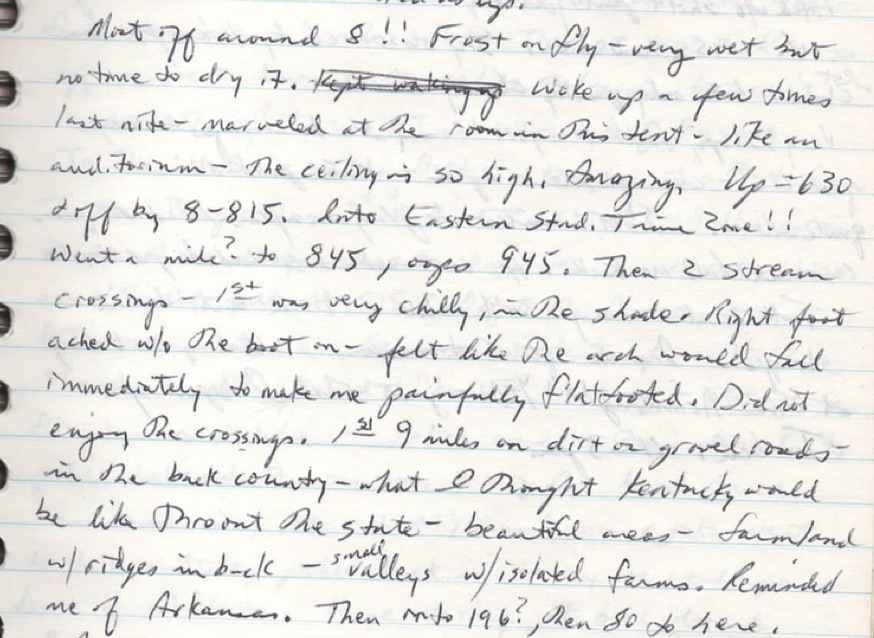 Most off around 8!! Frost on fly - very wet but
no time to dry it. Kept waking up Woke up a few times
last nite - marveled at the room in this tent - like an
auditorium - the ceiling is so high. Amazing. Up = 630
& off by 8-815. Into Eastern Stnd. Time Zone!!
Went a mile? to 845, oops 945. Then 2 stream
crossings - 1st was very chilly, in the shade. Right foot
ached w/o the boot on - felt like the arch would fall
immediately to make me painfully flatfooted. Did not
enjoy the crossings. 1st 9 miles on dirt or gravel roads -
in the back country - what I thought Kentucky would
be like thruout the state - beautiful areas - farmland
w/ ridges in back - small valleys w/ isolated farms. Reminded
me of Arkansas. Then onto 196?, then 80 to here.